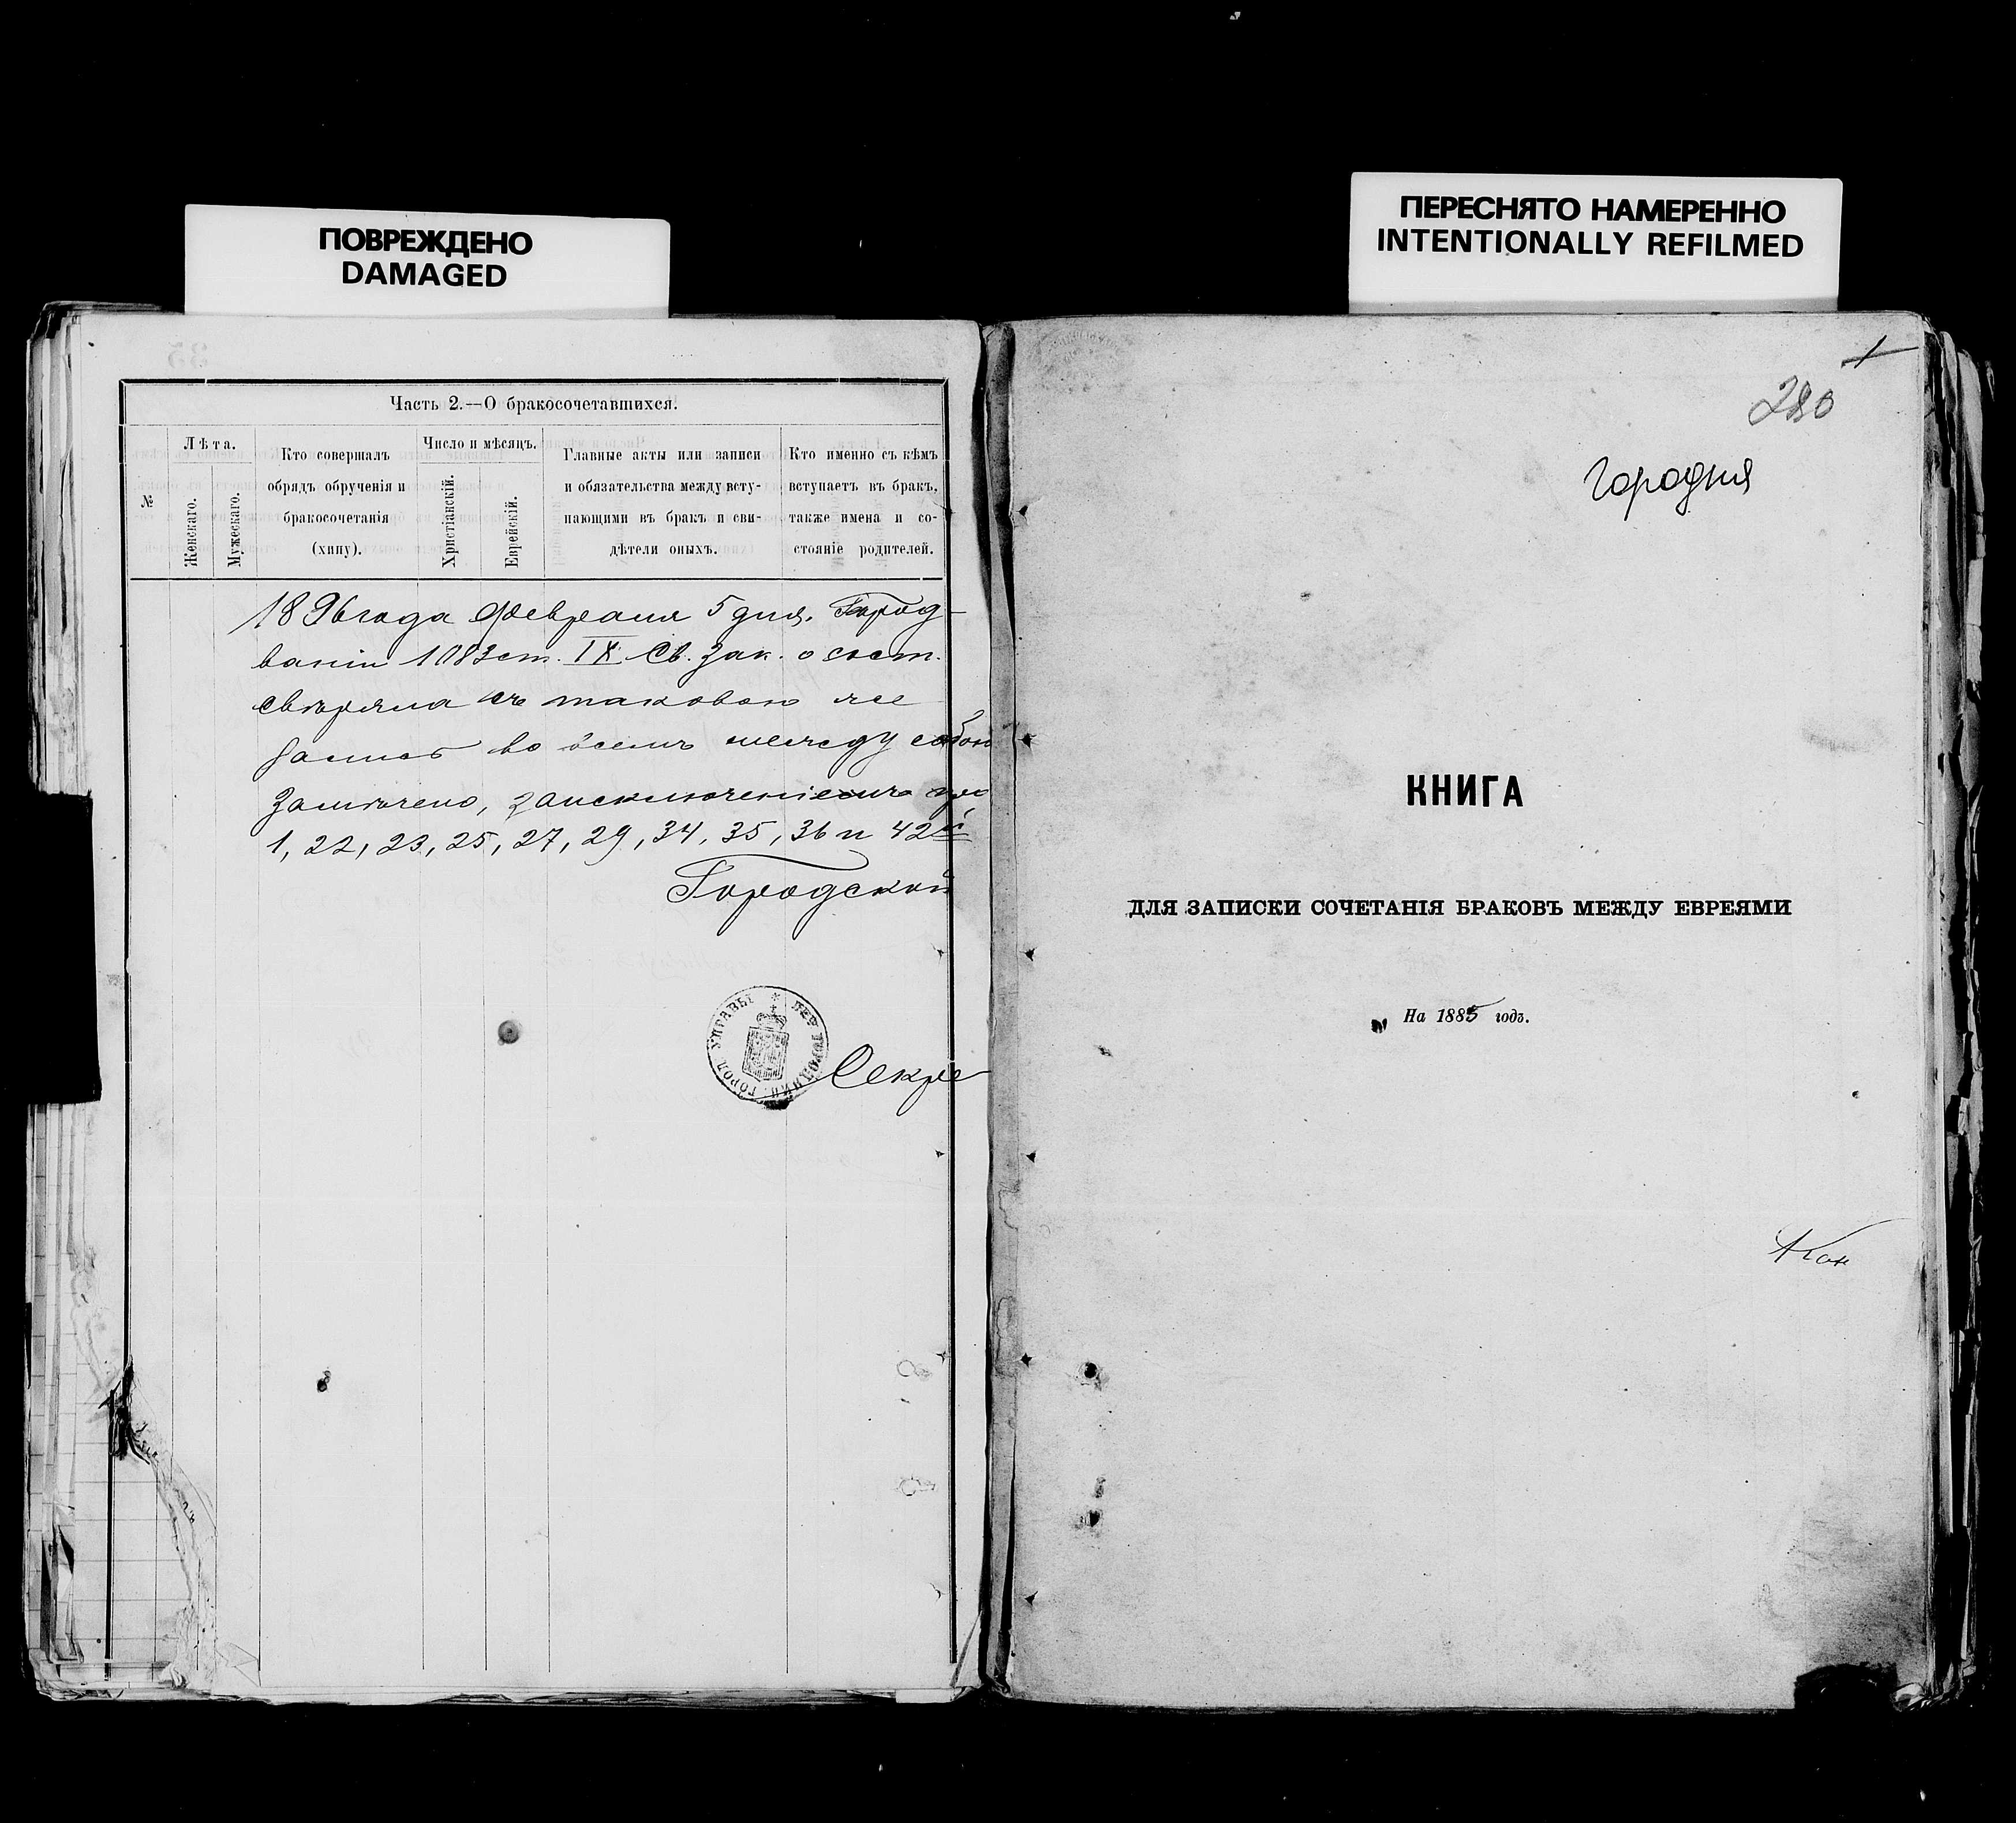 ПОВРЕЖДЕНО
DAMAGED
Часть 2.—О бракосочетавшихся.
№
Лѣта.
Женскаго.
Мужескаго.
Кто совершалъ
обрядъ обрученія и
бракосочетанія
(хипу).
Число и мѣсяцъ.
Христіанскій.
Еврейскій.
Главные акты или записи
и обязательства между всту-
пающими въ бракъ и сви-
дѣтели оныхъ.
Кто именно съ кѣмъ
вступаетъ въ бракъ,
также имена и со-
стояніе родителей.
1896 года Февраля 5 дня. Город-
ваніи 1083 ст. IX Св. Зак. о сост.
свѣряла съ таковою же
во всемъ между собою
замѣчено, за исключеніемъ
1, 22, 23, 25, 27, 29, 34, 35, 36 и 42
Городской
ГОРОД УПРАВЫ
Секре
ПЕРЕСНЯТО НАМЕРЕННО
INTENTIONALLY REFILMED
280
Городня
КНИГА
ДЛЯ ЗАПИСКИ СОЧЕТАНІЯ БРАКОВЪ МЕЖДУ ЕВРЕЯМИ
На 1885 годъ.
Кон